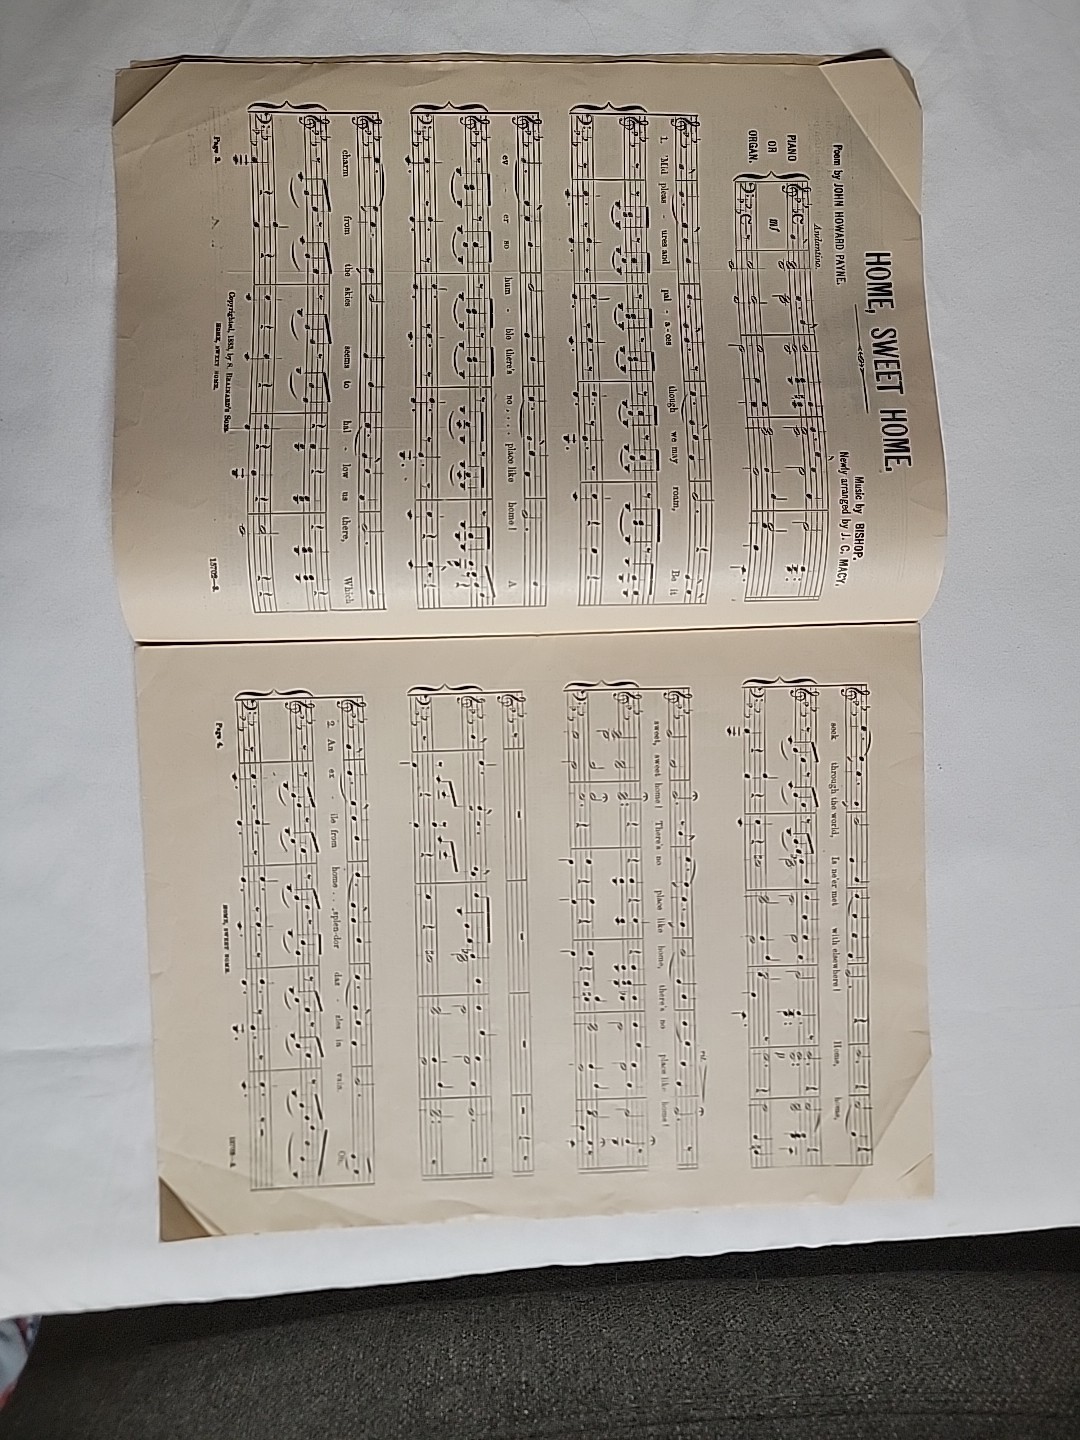 HOME, SWEET HOME.
Poem by JOHN HOWARD PAYNE.
Music by BISHOP.
Newly arranged by J. C. MACY.
Andantino.
PIANO
OR
ORGAN.
mf
1. 'Mid pleas - ures and pal - a - ces though we may roam, Be it
ev - er so hum - ble there's no . . . . place like home! A
charm from the skies seems to hal - low us there, Which
Page 3.
Copyrighted, 1883, by S. BRAINARD'S SONS.
HOME, SWEET HOME.
seek through the world, Is ne'er met with elsewhere! Home, home,
p
sweet, sweet home! There's no place like home, there's no place like home!
2 An ex - ile from home . . splen-dor daz - zles in vain. Oh,
Page 4.
HOME, SWEET HOME.